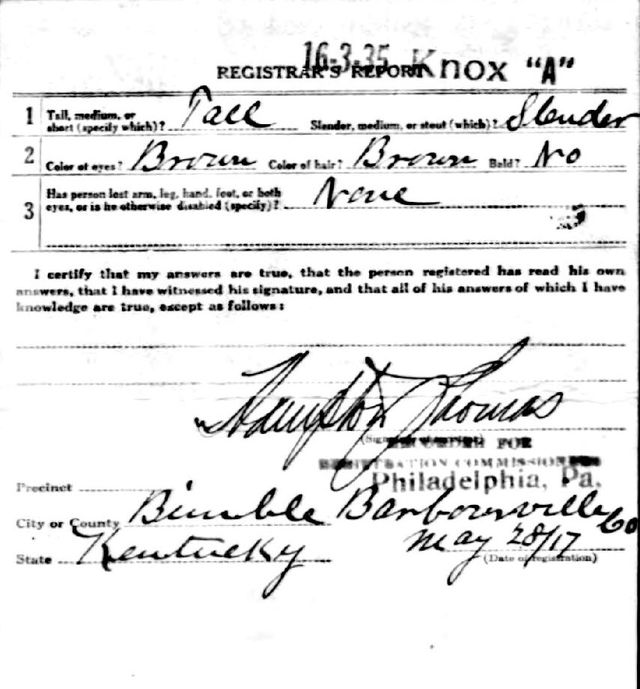 16-3-35 Knox "A"
REGISTRAR'S REPORT
1 Tall, medium, or short (specify which)? Tall Slender, medium, or stout (which)? Slender
2 Color of eyes? Brown Color of hair? Brown Bald? No
3 Has person lost arm, leg, hand, foot, or both eyes, or is he otherwise disabled (specify)? None
I certify that my answers are true, that the person registered has read his own
answers, that I have witnessed his signature, and that all of his answers of which I have
knowledge are true, except as follows:
Hampton Thomas
FOR
REGISTRATION COMMISSION
Philadelphia, Pa.
Precinct
City or County Bimble Barbourville Co
State Kentucky May 28/17
(Date of registration)